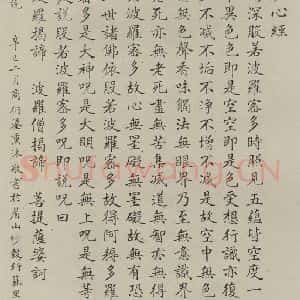 心經
深般若波羅蜜多時照見五蘊皆空度一
異色色即是空空即是色受想行識亦復
不滅不垢不淨不增不減是故空中無色
無色聲香味觸法無眼界乃至無意識界
死亦無老死盡無苦集滅道無智亦無得
多故心無罣礙無罣礙故無有恐
世諸佛依般若波羅蜜多故得阿耨多羅
多是大神咒是大明咒是無上咒是無等
說般若波羅蜜多咒即說咒曰
羅揭諦 波羅僧揭諦 菩提薩婆訶
辛巳二月 於眉山
Shufawang.CN